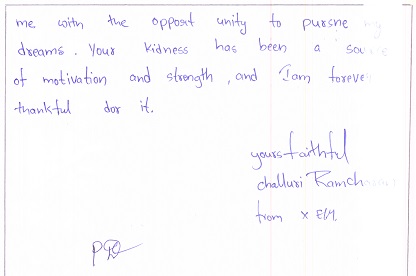 me with the opposit unity to pursne my
dreams. Your kidness has been a
of motivation and strength, and I am foreve
thankful dor it.
yours faithful
challuri Ramch
from x E/M.